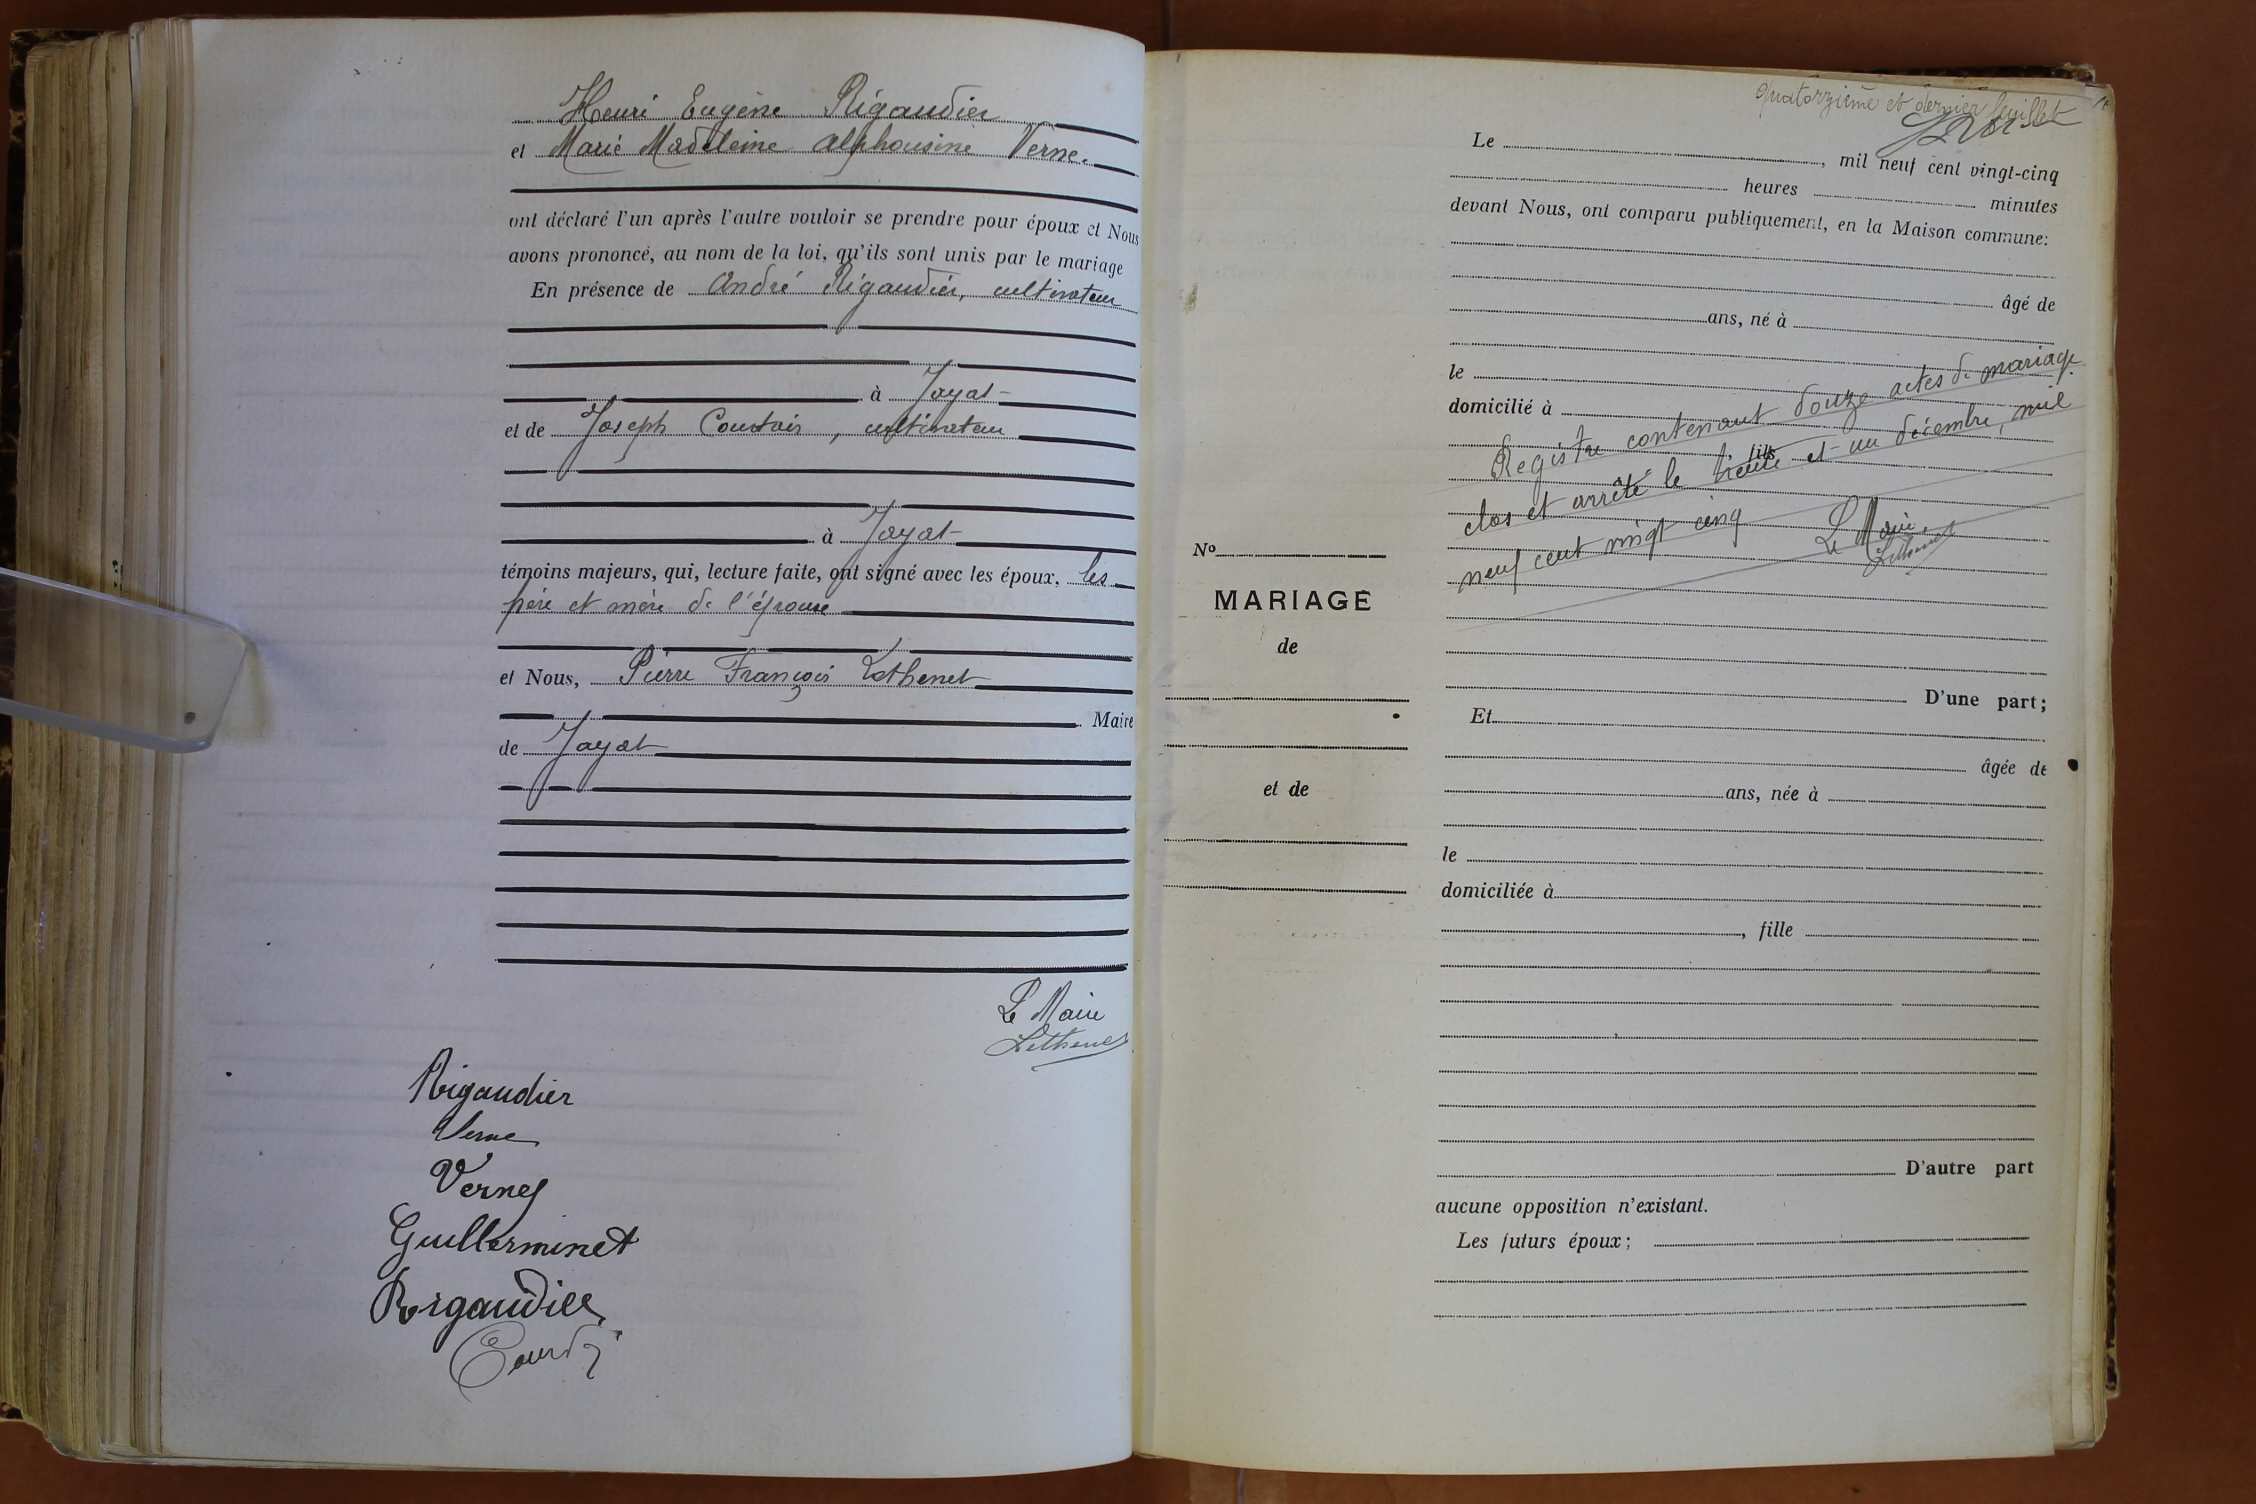 Henri Eugène Rigaudier
et Marie Madeleine Alphonsine Verne.
ont déclaré l'un après l'autre vouloir se prendre pour époux et Nous
avons prononcé, au nom de la loi, qu'ils sont unis par le mariage
En présence de André Rigaudier, cultivateur
à Jayat
et de Joseph , cultivateur
à Jayat
témoins majeurs, qui, lecture faite, ont signé avec les époux, les
père et mère de l'épouse
et Nous, Pierre François Lethenet
Maire
de Jayat
Le Maire
Lethenet
Rigaudier
Verne
Verne
Guillerminet
Rigaudier
quatorzième et dernier feuillet
Le , mil neuf cent vingt-cinq
heures minutes
devant Nous, ont comparu publiquement, en la Maison commune:
âgé de
ans, né à
le
domicilié à
fils
Registre contenant douze actes de mariage
clos et arrêté le trente et un décembre, mil
neuf cent vingt cinq
Le Maire
Lethenet
D'une part;
Et
âgée de
ans, née à
le
domiciliée à
, fille
D'autre part
aucune opposition n'existant.
Les futurs époux;
No
MARIAGE
de
et de